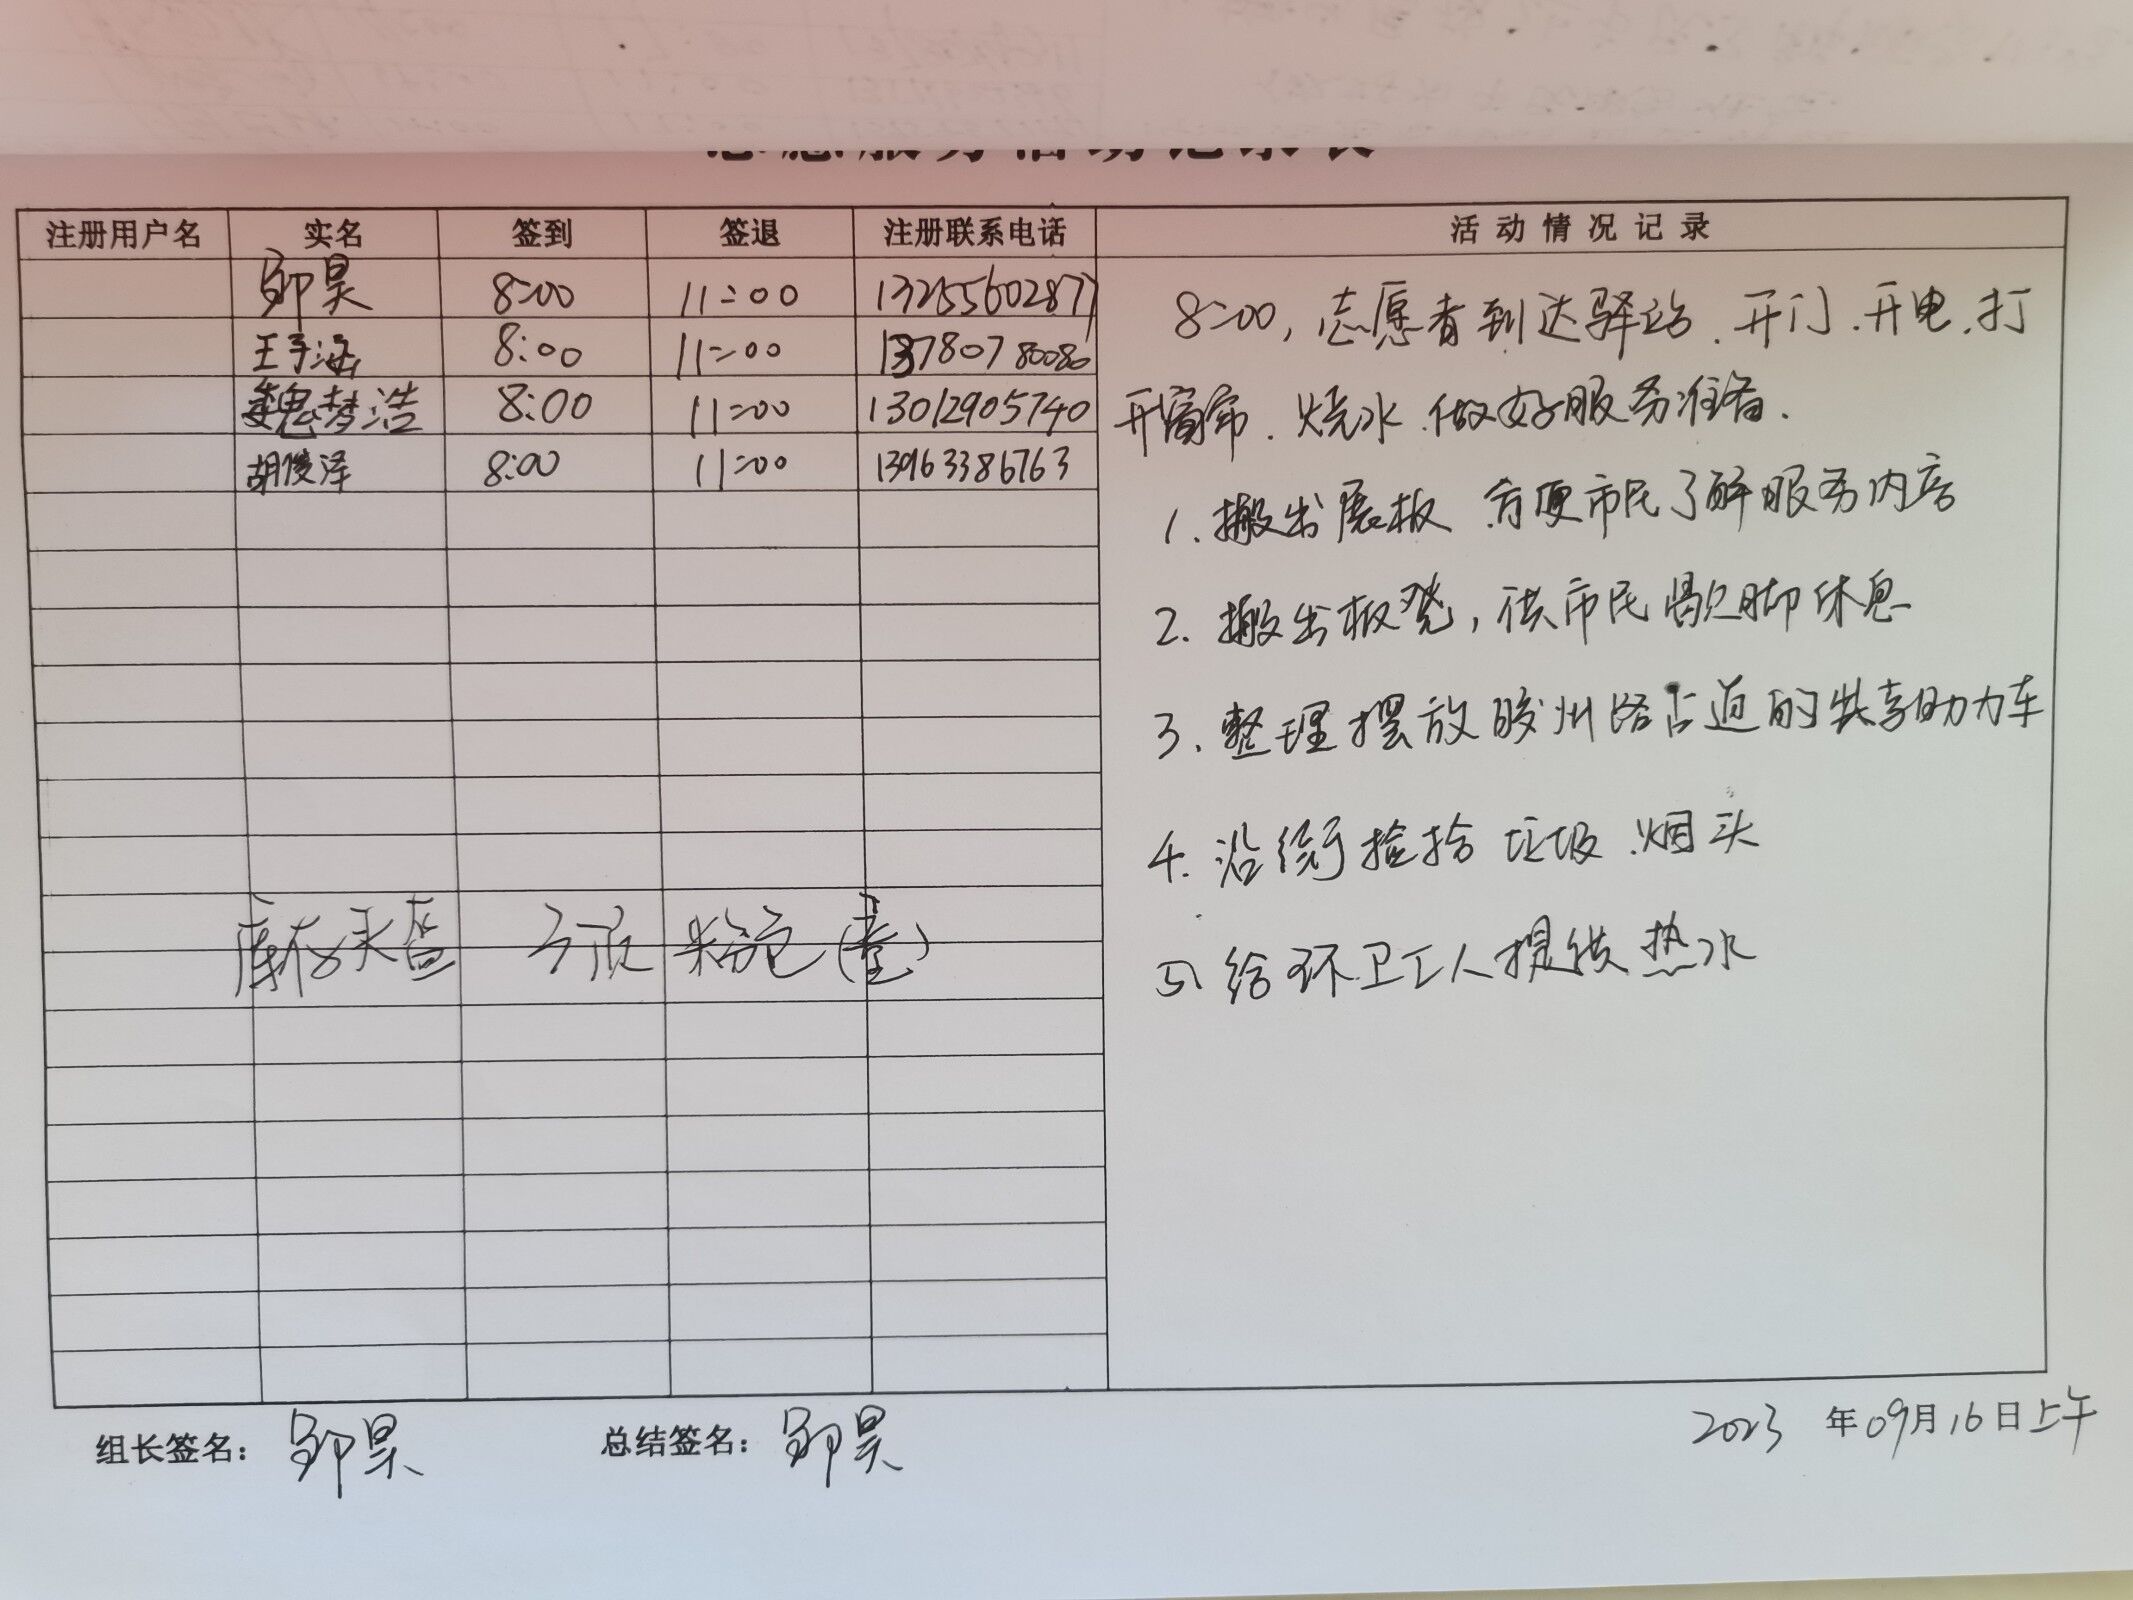 志愿服务活动记录表
注册用户名 实名 签到 签退 注册联系电话 活动情况记录
邹昊 8:00 11:00 13255602877
王子涵 8:00 11:00 13780780080
魏梦浩 8:00 11:00 13012905740
胡俊泽 8:00 11:00 13963386763
8:00,志愿者到达驿站、开门、开电、打
开窗帘、烧水、做好服务准备.
1.搬出展板 方便市民了解服务内容
2.搬出板凳,供市民歇脚休息
3.整理摆放胶州路占道的共享助力车
4.沿街捡拾垃圾、烟头
5.给环卫工人提供热水
库存头盔 3顶 粉色(童)
组长签名: 邹昊 总结签名: 邹昊 2023年09月16日上午